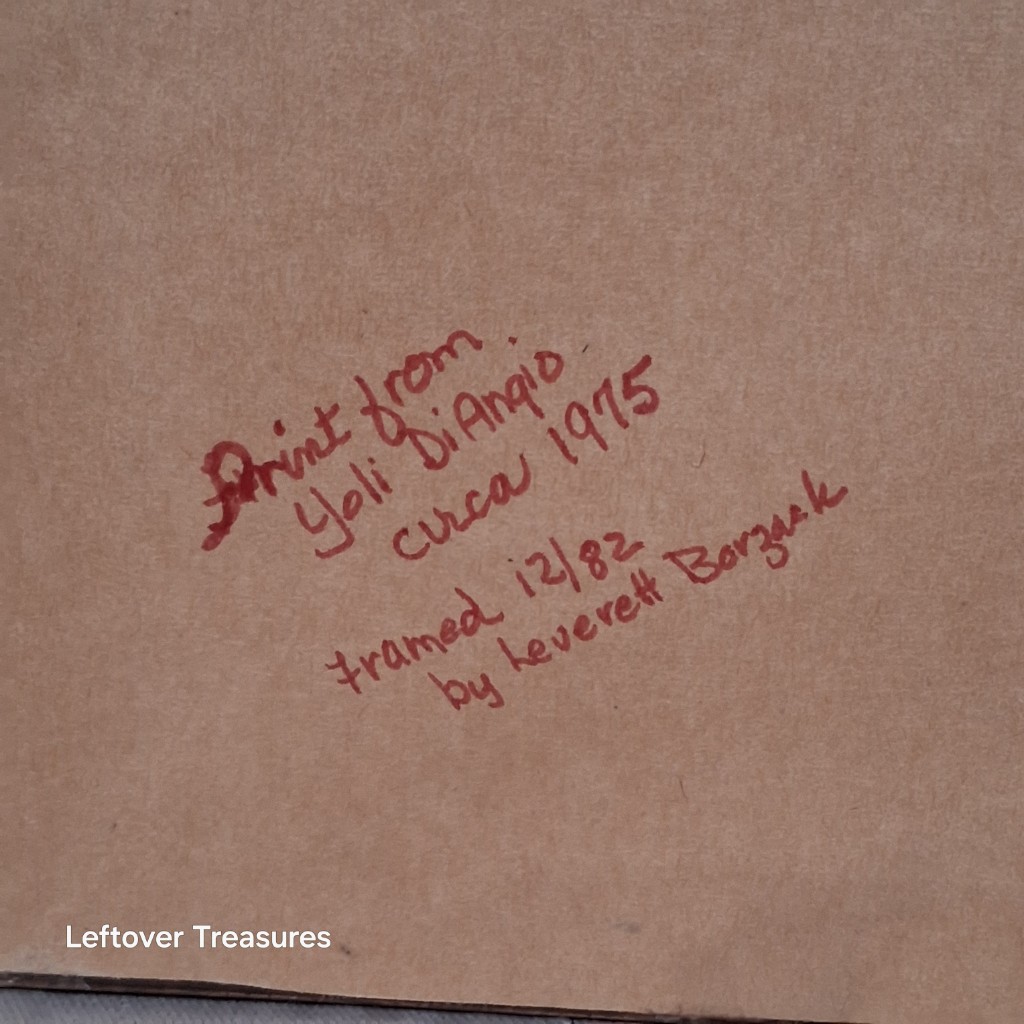 Print from
Yoli DiAngio
circa 1975
framed 12/82
by Leverett Borzack
Leftover Treasures